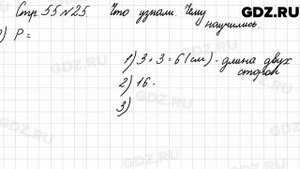 Стр. 55 №25. Что узнали. Чему научились.
GDZ.RU
) P =
1) 3 + 3 = 6 (см) - длина двух сторон
2) 16 -
3)
GDZ.RU